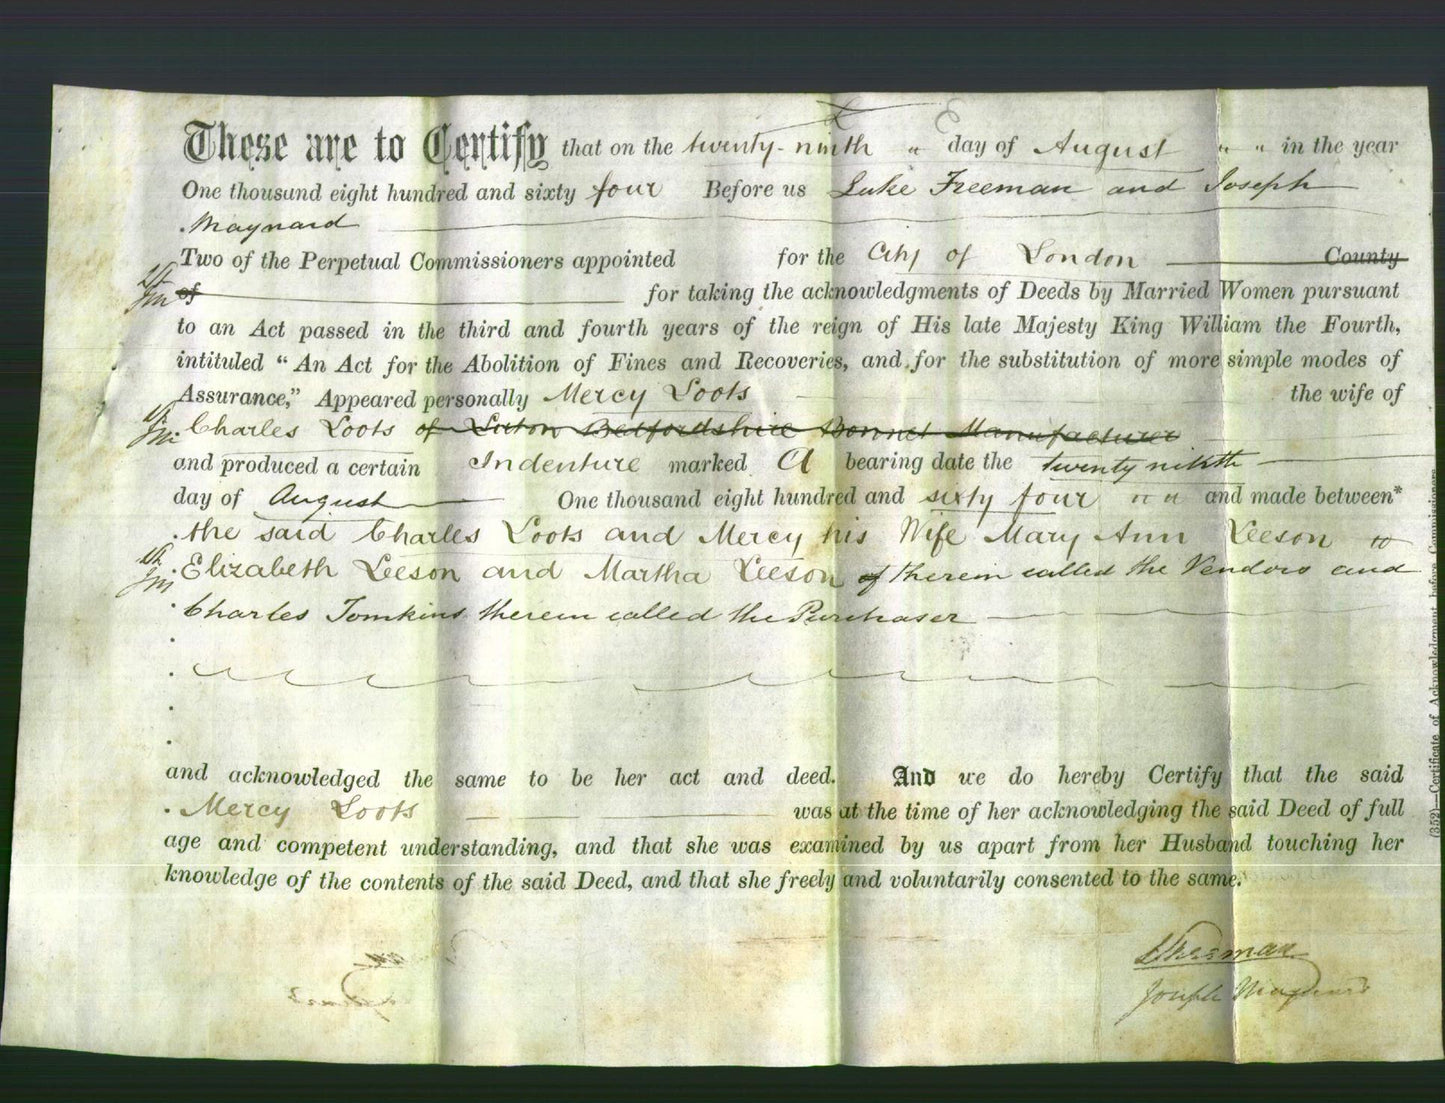 These are to Certify that on the twenty-ninth " day of August " " in the year
One thousand eight hundred and sixty four Before us Luke Freeman and Joseph
Maynard
Two of the Perpetual Commissioners appointed for the City of London County
of for taking the acknowledgments of Deeds by Married Women pursuant
to an Act passed in the third and fourth years of the reign of His late Majesty King William the Fourth,
intituled “ An Act for the Abolition of Fines and Recoveries, and for the substitution of more simple modes of
Assurance,” Appeared personally Mercy Loots the wife of
Charles Loots of Luton Bedfordshire Bonnet Manufacturer
and produced a certain Indenture marked A bearing date the twenty ninth
day of August One thousand eight hundred and sixty four " " and made between*
the said Charles Loots and Mercy his Wife Mary Ann Leeson
Elizabeth Leeson and Martha Leeson of therein called the Vendors and
Charles Tomkins therein called the Purchaser
and acknowledged the same to be her act and deed. And we do hereby Certify that the said
Mercy Loots was at the time of her acknowledging the said Deed of full
age and competent understanding, and that she was examined by us apart from her Husband touching her
knowledge of the contents of the said Deed, and that she freely and voluntarily consented to the same.
LFreeman
Joseph Maynard
(352)—Certificate of Acknowledgment before Commissioners